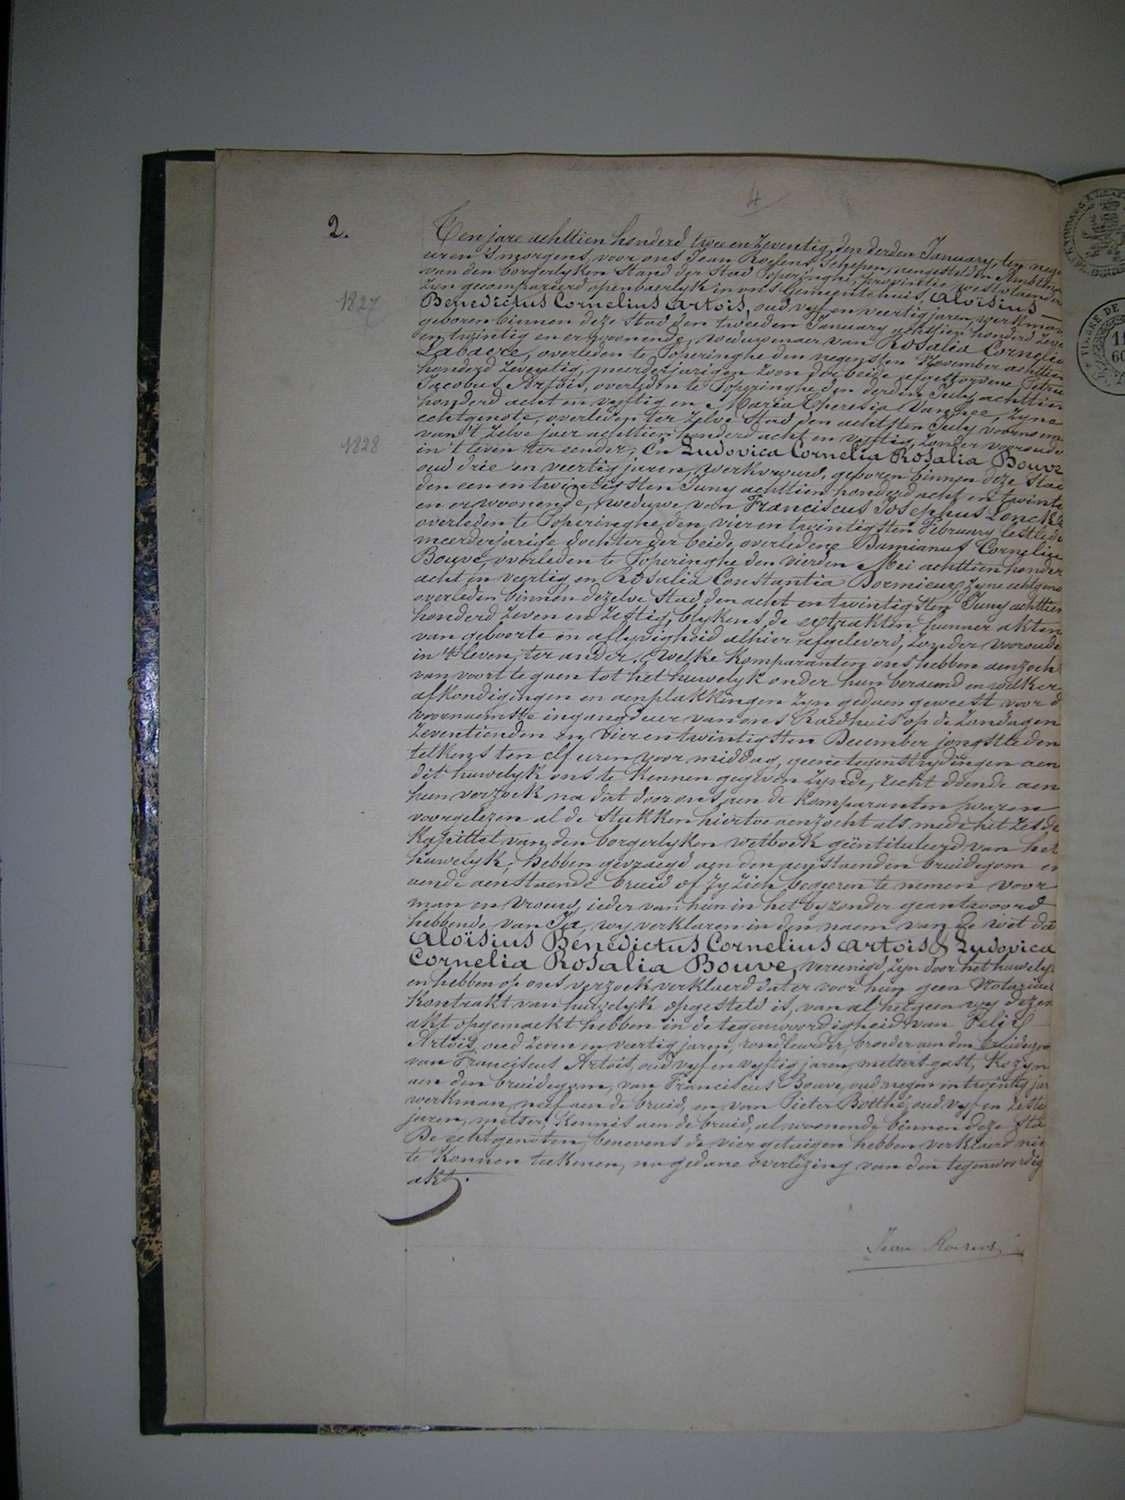 4
2.
Ten jare achttien honderd twee en Zeventig, den derden January, ten negen
uren 's morgens, voor ons Jean Roesens, Schepen, aengestelden Ambtenaer
van den borgerlyken Stand der Stad Poperinghe, provintie Westvlaenderen
Zyn gecompareerd openbaerlyk in ons Gemeentehuis, Aloïsius
1827
Benedictus Cornelius Artois, oud vyf en veertig jaren, werkman
geboren binnen deze Stad den tweeden January achttien honderd Zeven
en twintig en er woonende, weduwenaer van Rosalia Cornelia
Labaere, overleden te Poperinghe den negensten November achttien
honderd Zeventig, meerderjarigen Zoon der beide afgestorvene Petrus
Jacobus Artois, overleden te Poperinghe den derden July achttien
honderd acht en vyftig en Maria Theresia Vanhee, Zyne
echtgenote, overleden ter Zelve Stad den achtsten July voornoemd
van 't Zelve jaer achttien honderd acht en vyftig, Zonder voorouders
1828
in 't leven ter eender; En Ludovica Cornelia Rosalia Bouve
oud drie en veertig jaren, Werkvrouw, geboren binnen deze Stad
den een en twintigsten Juny achttien honderd acht en twintig
en er woonende, weduwe van Franciscus Josephus Loncke
overleden te Poperinghe den vier en twintigsten February lestleden
meerderjarige dochter der beide overledene Damianus Cornelius
Bouve, overleden te Poperinghe den vierden Mei achttien honderd
acht en veertig, en Rosalia Constantia Dormieux, Zyne echtgenote
overleden binnen dezelve Stad den acht en twintigsten Juny achttien
honderd Zeven en Zestig, blykens de extrakten hunner akten
van geboorte en aflyvigheid alhier afgeleverd, Zonder voorouders
in 't leven, ter ander. Welke Komparanten ons hebben aenzocht
van voort te gaen tot het huwelyk onder hun beraemd en welkers
afkondigingen en aenplakkingen Zyn gedaen geweest voor d
voornaemste ingangdeur van ons Raedhuis op de Zondagen
Zeventienden en Vier en twintigsten December jongstleden
telkens ten elf uren voor middag, geene tegenstrydingen aen
dit huwelyk ons te Kennen gegeven Zynde, recht doende aen
hun verzoek, na dat door ons aen de Komparanten waren
voorgelezen al de Stukken hiertoe aenzocht als mede het Zesde
Kapittel van den borgerlyken Wetboek geïntituleerd van het
huwelyk; Hebben gevraegd aen den aenstaenden bruidegom en
aende aenstaende bruid of Zy Zich begeeren te nemen voor
man en vrouw, ieder van hun in het byzonder geantwoord
hebbende van Ja, wy verklaren in den naem van de wet dat
Aloïsius Benedictus Cornelius Artois & Ludovica
Cornelia Rosalia Bouve, vereenigd Zyn door het huwelyk
en hebben op ons verzoek verklaerd dat er voor hun geen Notariael
Kontrakt van huwelyk opgesteld is, van al hetgeen wy dezen
akt opgemaekt hebben in de tegenwoordigheid van Felix
Artois, oud Zeven en veertig jaren, rondleurder, broeder aen den bruidegom
van Franciscus Artois, oud vyf en vyftig jaren, metters gast, Kozyn
aen den bruidegom, van Franciscus Bouve, oud negen en twintig jaren
werkman, neef aen de bruid, en van Pieter Botthé, oud vyf en Zestig
jaren, metser, Kennis aen de bruid, al woonende binnen deze Stad
De echtgenoten, benevens de vier getuigen hebben verklaerd niet
te Konnen teekenen, na gedane overlezing van den tegenwoordigen
akt.
Jean Roesens